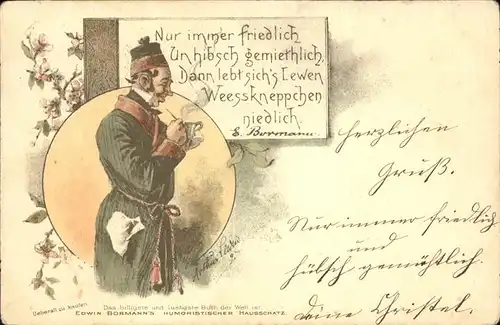 Nur immer friedlich
Un hibsch gemiethlich,
Dann lebt sich's Lewen
Weesskneppchen
niedlich.
E. Bormann.
herzlichen
Gruß.
Nur immer friedlich
und
hübsch gemühtlich.
Deine Christel.
Ueberall zu kaufen
Das billigste und lustigste Buch der Welt ist
EDWIN BORMANN'S HUMORISTISCHER HAUSSCHATZ.